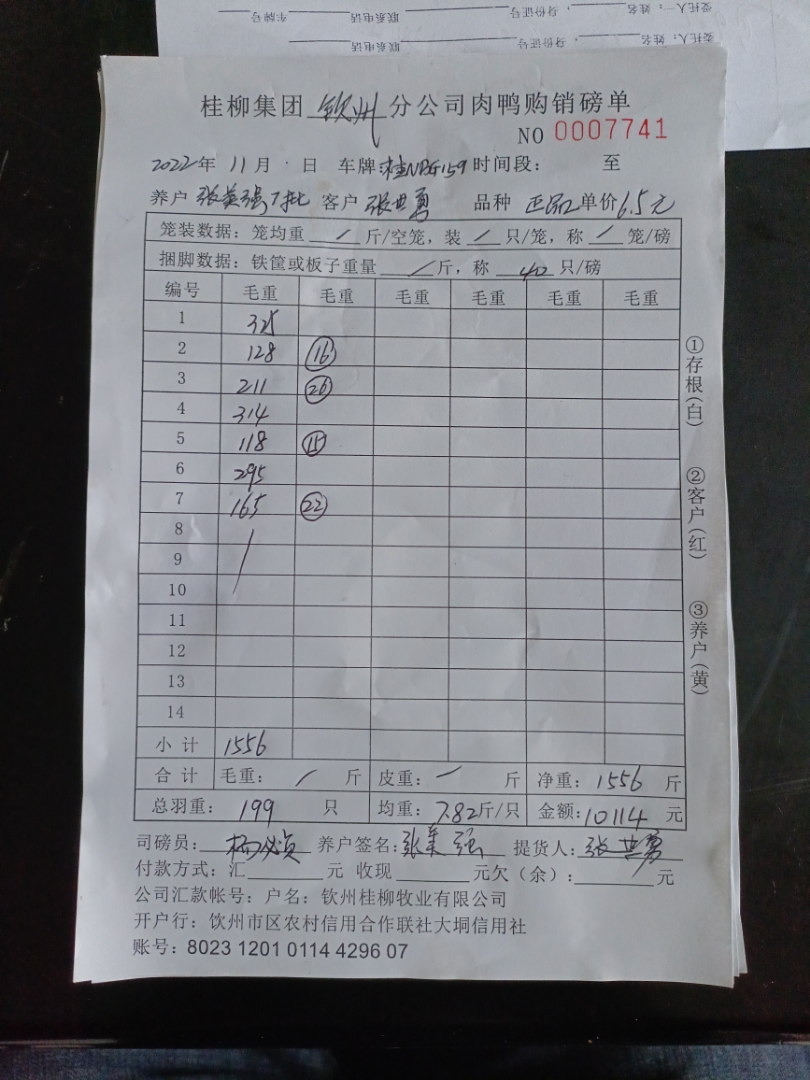 桂柳集团 钦州 分公司肉鸭购销磅单
NO 0007741
2022年 11月 日 车牌 时间段： 至
养户 张美强 客户 张世勇 品种 正品 单价 6.5元
笼装数据：笼均重 / 斤/空笼，装 / 只/笼，称 / 笼/磅
捆脚数据：铁筐或板子重量 / 斤，称 40 只/磅
编号 毛重 毛重 毛重 毛重 毛重 毛重
1 325
2 128 16
3 211 26
4 314
5 118 15
6 295
7 165 22
8
9
10
11
12
13
14
小计 1556
合计 毛重： / 斤 皮重： — 斤 净重：1556 斤
总羽重：199 只 均重：7.82斤/只 金额：10114 元
司磅员： 养户签名：张美强 提货人：张世勇
付款方式：汇 元 收现 元欠（余）： 元
公司汇款帐号：户名：钦州桂柳牧业有限公司
开户行：钦州市区农村信用合作联社大垌信用社
账号：8023 1201 0114 4296 07
①存根（白）
②客户（红）
③养户（黄）
委托人：姓名： ，身份证号 联系电话 车牌号
委托人：姓名： ，身份证号 联系电话